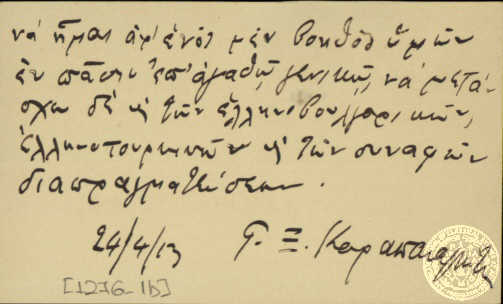 νά ἦμαι ἀφ' ἑνός μέν βοηθός ὑμῶν
ἐν πᾶσιν ἐπ' ἀγαθῷ γενικῷ, νά μετά-
σχω δέ κ τῶν ἑλληνοβουλγαρικῶν,
ἑλληνοτουρκικῶν κ τῶν συναφῶν
διαπραγματεύσεων.
24/4/13 Γ. Ξ.
[1276-1b]